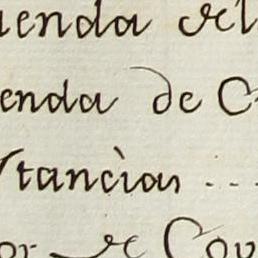 uenda del
enda de C
stancias ...
or de Cou